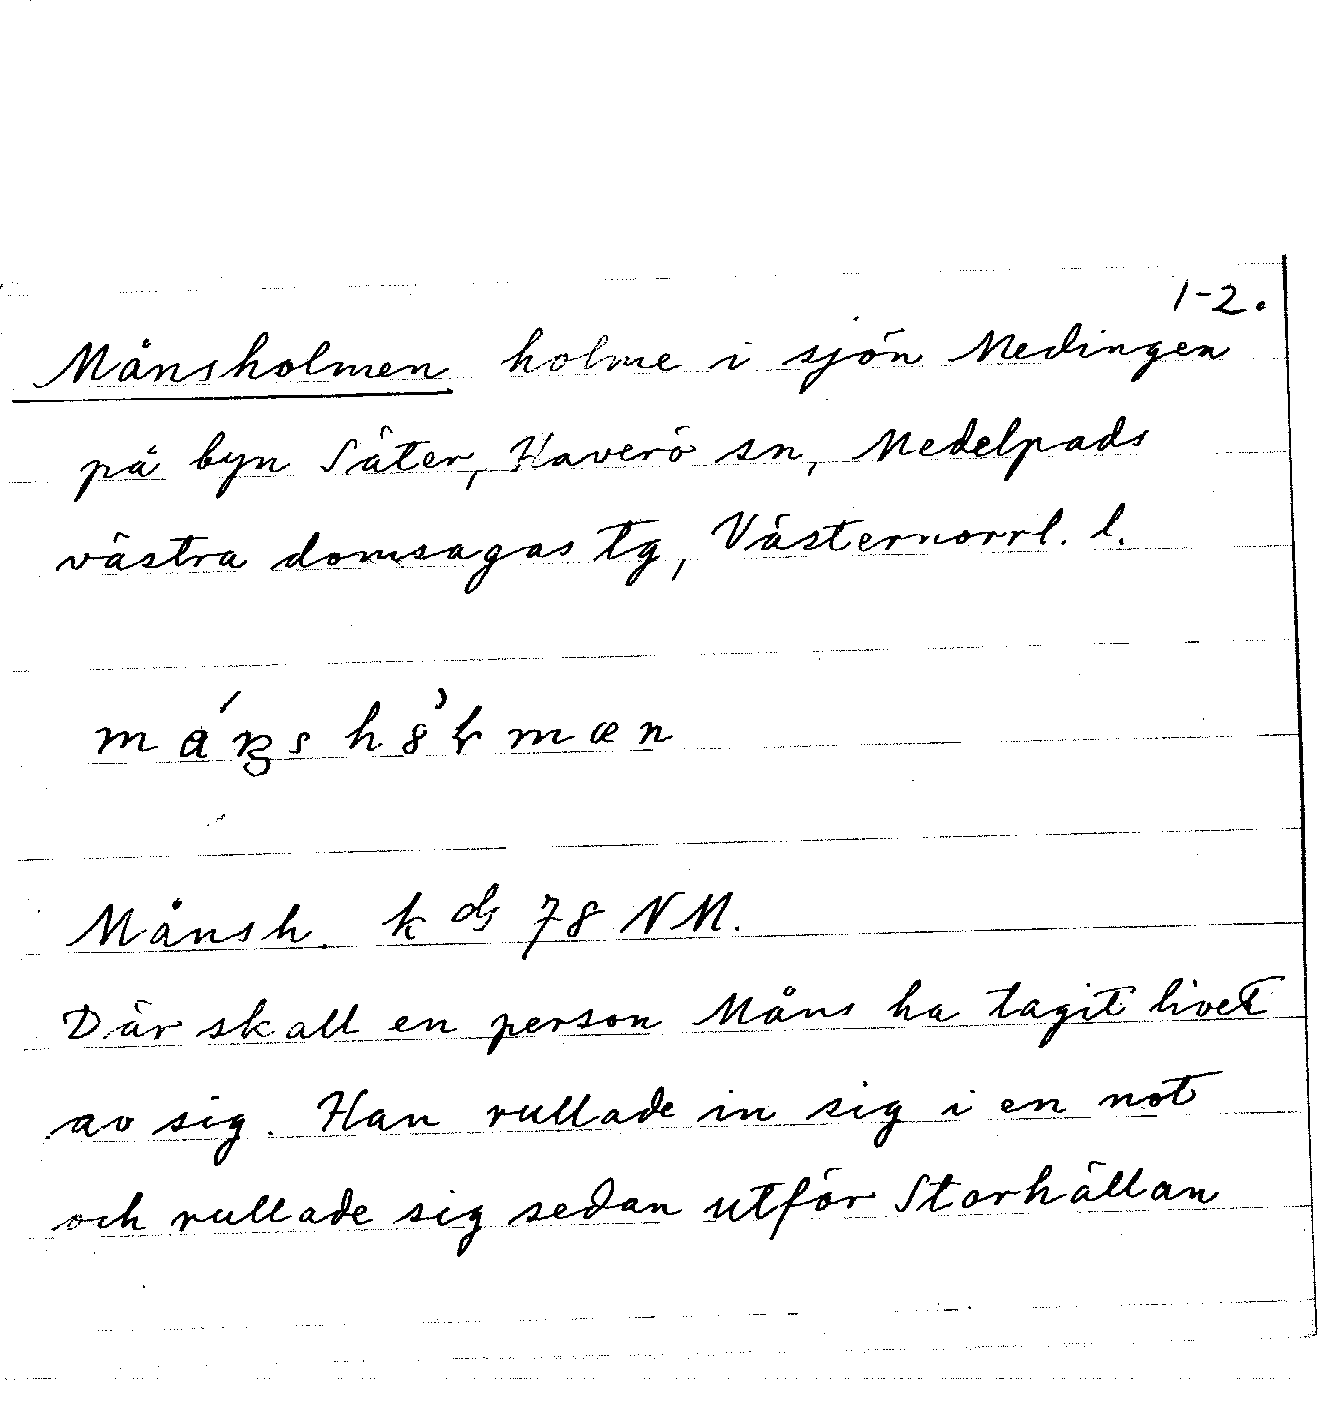 1-2.
Månsholmen holme i sjön Medingen
på byn Säter, Haverö sn, Medelpads
västra domsagas tg, Västernorrl. l.
Månsh. k ds 78 NM.
Där skall en person Måns ha tagit livet
av sig. Han rullade in sig i en not
och rullade sig sedan utför Storhällan